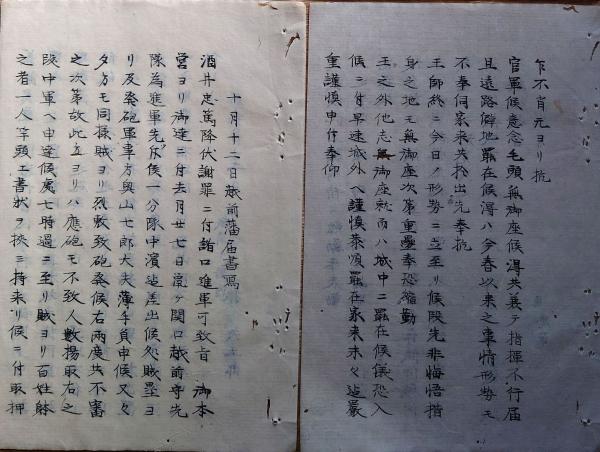 乍不肖元ヨリ抗
官軍候意念毛頭無御座候得共兼テ指揮不行届
且遠路僻地罷在候得ハ今春以来之事情形勢モ
不奉伺家来共於出先奉抗
王師終ニ今日ノ形勢ニ立至リ候段先非悔悟措
身之地モ無御座次第重疊奉恐縮勤
王之外他志無御座就而ハ城中ニ罷在候儀恐入
候ニ付早速城外ヘ謹慎恭順罷在家来末々迄嚴
重謹慎申付奉仰
十月十二日越前藩届書寫
酒井忠篤降伏謝罪ニ付諸口進軍可致旨 御本
營ヨリ御達ニ付去月廿七日鼠ヶ関口越前守先
隊為進軍先斥候一分隊中濱迄差出候処賊壘ヨ
リ及發砲軍事方奥山七郎大夫薄手負申候又々
夕方モ同様賊ヨリ烈敷致砲發候右兩度共不審
之次第故此方ヨリハ應砲モ不致人數揚取右之
段中軍ヘ申達候處七時過ニ至リ賊ヨリ百姓躰
之者一人竿頭エ書状ヲ挾ミ持来リ候ニ付取押